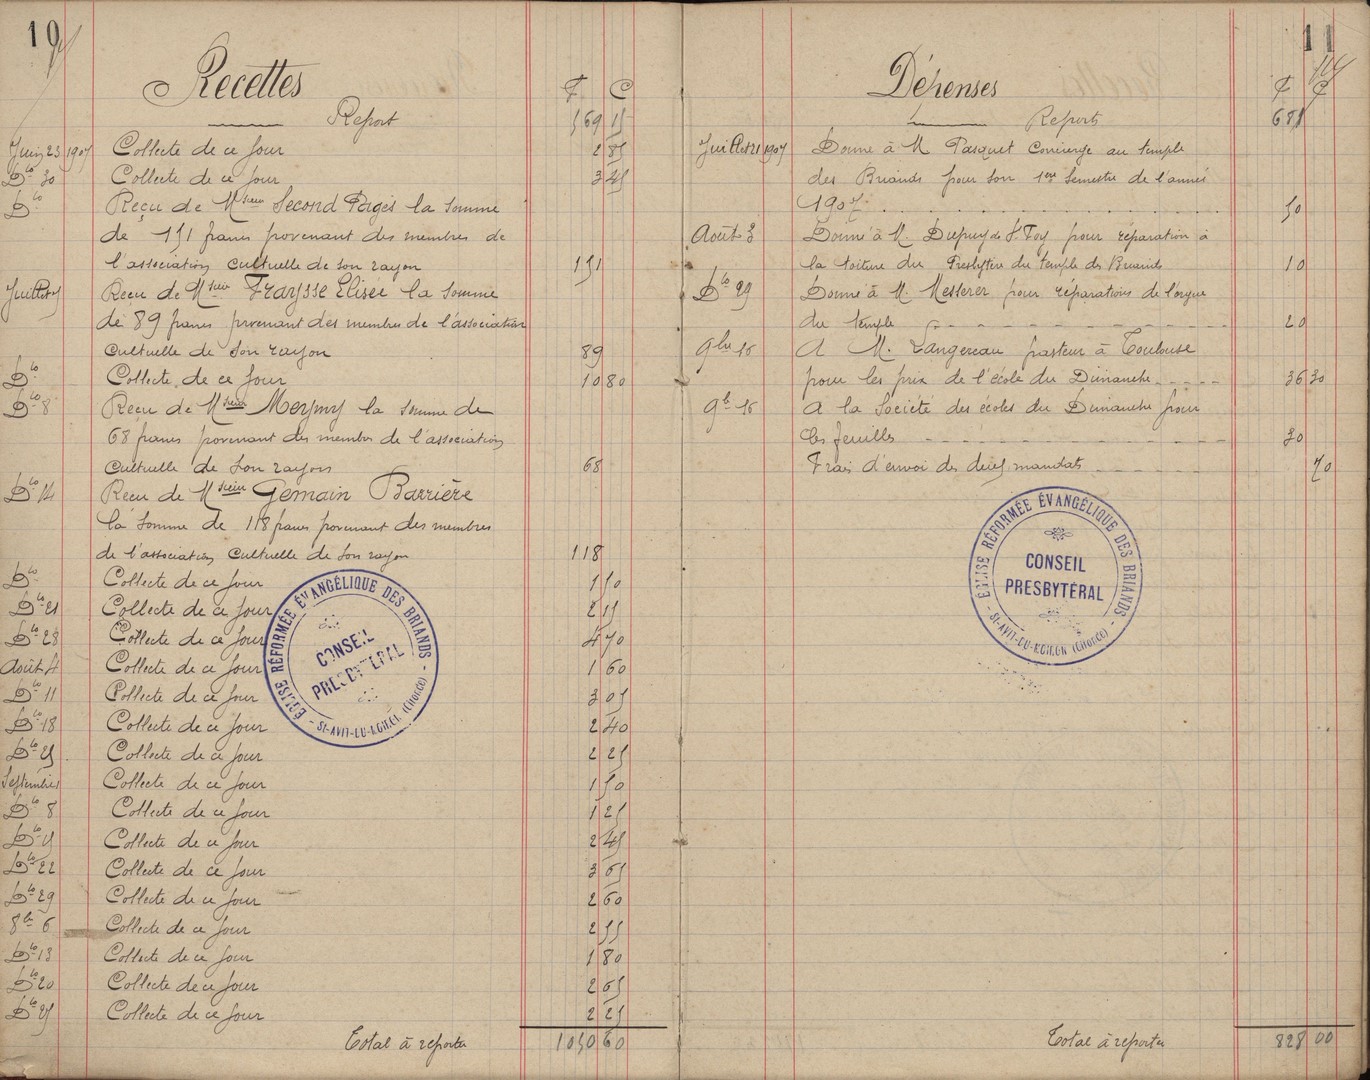 10
Recettes
F C
Report 569 15
Juin 23 1907 Collecte de ce jour 2 85
Dto 30 Collecte de ce jour 3 45
Dto Reçu de Msieur Second Pagès la somme
de 151 francs provenant des membres de
l'association cultuelle de son rayon 151
Juillet 7 Recu de Msieur Fraysse Elisée la somme
de 89 francs provenant des membres de l'association
cultuelle de son rayon 89
Dto Collecte de ce jour 10 80
Dto 8 Recu de Msieur Meymy la somme de
68 francs provenant des membres de l'association
cultuelle de son rayon 68
Dto 14 Recu de Msieur Gemain Barrière
la somme de 118 francs provenant des membres
de l'association cultuelle de son rayon 118
Dto Collecte de ce jour 1 50
Dto 21 Collecte de ce jour 2 15
Dto 28 Collecte de ce jour 4 70
Août 4 Collecte de ce jour 1 60
Dto 11 Collecte de ce jour 3 05
Dto 18 Collecte de ce jour 2 40
Dto 25 Collecte de ce jour 2 25
Septembre 1 Collecte de ce jour 1 50
Dto 8 Collecte de ce jour 1 25
Dto 15 Collecte de ce jour 2 45
Dto 22 Collecte de ce jour 3 65
Dto 29 Collecte de ce jour 2 60
8bre 6 Collecte de ce jour 2 55
Dto 13 Collecte de ce jour 1 80
Dto 20 Collecte de ce jour 2 65
Dto 25 Collecte de ce jour 2 25
Total à reporter 1050 60
ÉGLISE RÉFORMÉE ÉVANGÉLIQUE DES BRIANDS
CONSEIL
PRESBYTÉRAL
11
Dépenses
F C
Report 681
Juillet 21 1907 Donné à M Pasquet Concierge au temple
des Briands pour son 1er Semestre de l'année
1907 50
Août 3 Donné à M. Dupuy de Ste Foy pour réparation à
la toiture du Presbytère du temple des Briands 10
Dto 29 Donné à M. Messerer pour réparations de l'orgue
du temple 20
9bre 16 A M. Langereau pasteur à Toulouse
pour les prix de l'école du Dimanche 36 30
9b 16 A la Société des écoles du Dimanche pour
les feuilles 30
Frais d'envoi des deux mandats 70
ÉGLISE RÉFORMÉE ÉVANGÉLIQUE DES BRIANDS
CONSEIL
PRESBYTÉRAL
Total à reporter 828 00